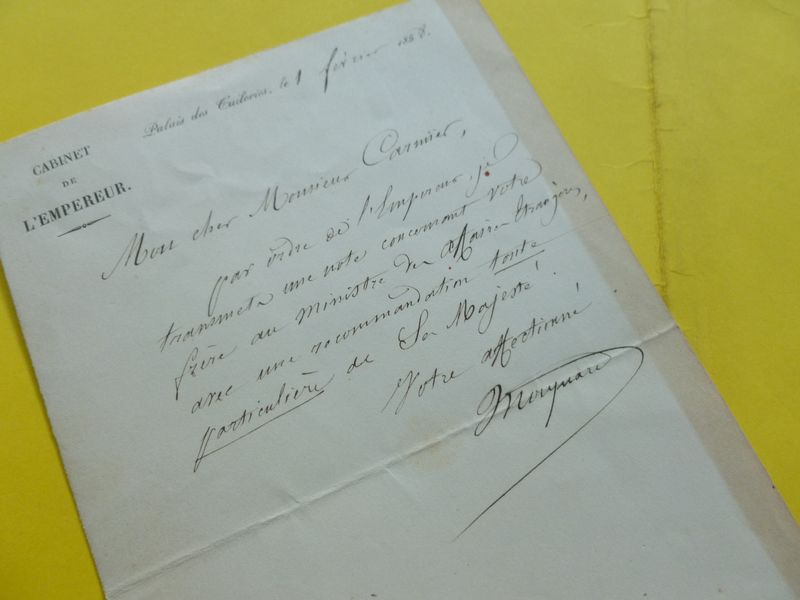 Palais des Tuileries, le 1 février 1858.
CABINET
DE
L'EMPEREUR.
Mon cher Monsieur Carmier,
par ordre de l'Empereur, je
transmets une note concernant votre
frère au ministre des Affaires Étrangères,
avec une recommandation toute
particulière de Sa Majesté!
Votre affectionné!
Mocquard